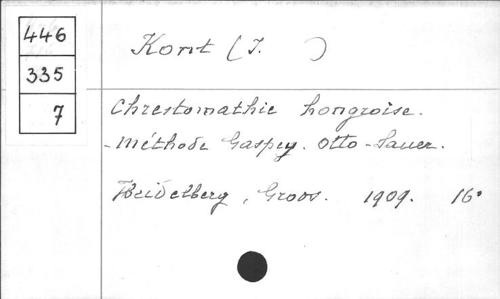 446
335
7
Kont (I. )
Chrestomathie hongroise.
- Méthode Gaspey. Otto-Sauer.
Heidelberg, Groos. 1909. 16°